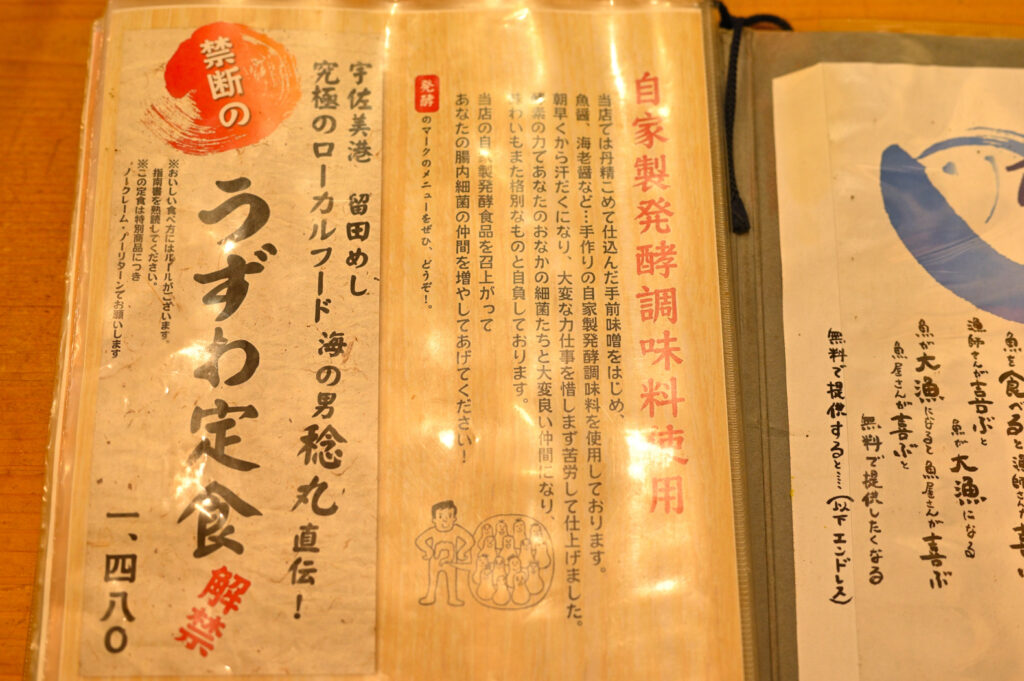 魚を食べると漁師さんが喜
漁師さんが喜ぶと
魚が大漁になる
魚が大漁になると魚屋さんが喜ぶ
魚屋さんが喜ぶと
無料で提供したくなる
無料で提供すると……(以下エンドレス)
自家製発酵調味料使用
当店では丹精こめて仕込んだ手前味噌をはじめ、
魚醤、海老醤など…手作りの自家製発酵調味料を使用しております。
朝早くから汗だくになり、大変な力仕事を惜しまず苦労して仕上げました。
酵素の力であなたのおなかの細菌たちと大変良い仲間になり、
味わいもまた格別なものと自負しております。
当店の自家製発酵食品を召上がって
あなたの腸内細菌の仲間を増やしてあげてください！
発酵のマークのメニューをぜひ、どうぞ！。
宇佐美港 留田めし
究極のローカルフード 海の男稔丸直伝！
禁断の
うずわ定食 解禁
※おいしい食べ方にはルールがございます。
指南書を熟読してください。
※この定食は特別商品につき
ノークレーム・ノーリターンでお願いします
一、四八〇